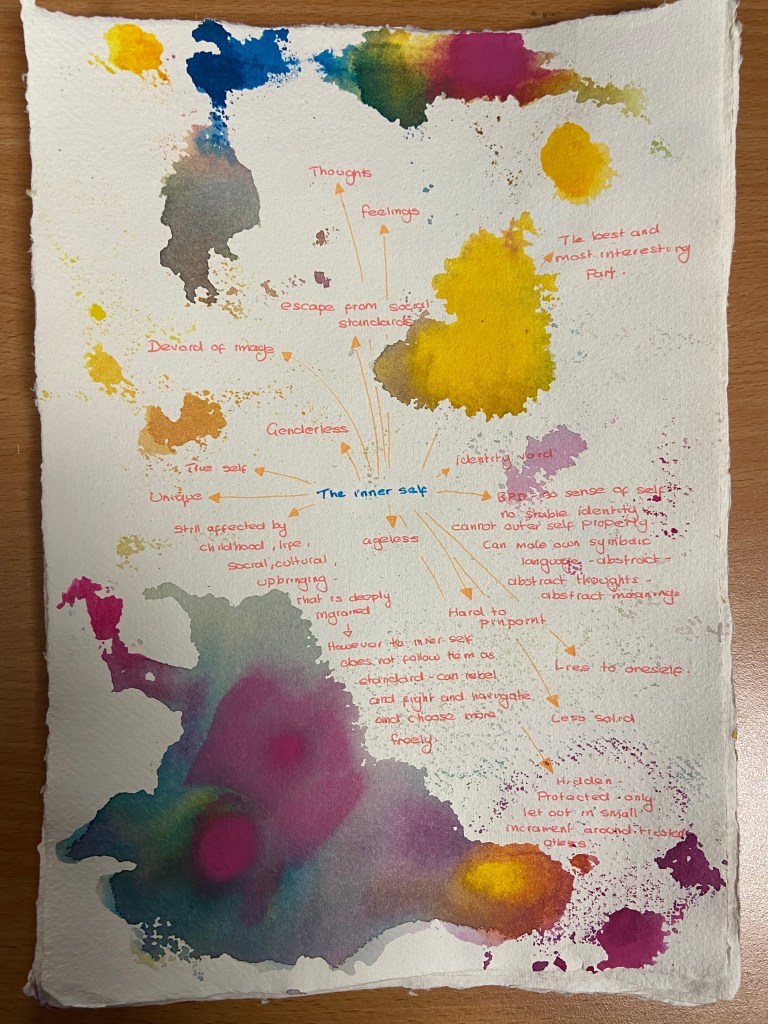 Thoughts
feelings
The best and
most interesting
Part.
escape from social
standards
Devoid of image
Genderless
True self
identity void
Unique
The inner self
BPD - no sense of self
no stable identity
cannot outer self properly
Can make own symbolic
language - abstract -
abstract thoughts -
abstract meanings
Still affected by
childhood, life,
social, cultural,
upbringing -
that is deeply
ingrained
ageless
Hard to
pinpoint
However the inner self
does not follow them as
standard - can rebel
and fight and navigate
and choose more
freely.
Lies to oneself
Less solid
Hidden -
Protected - only
let out in small
increment around trusted
others